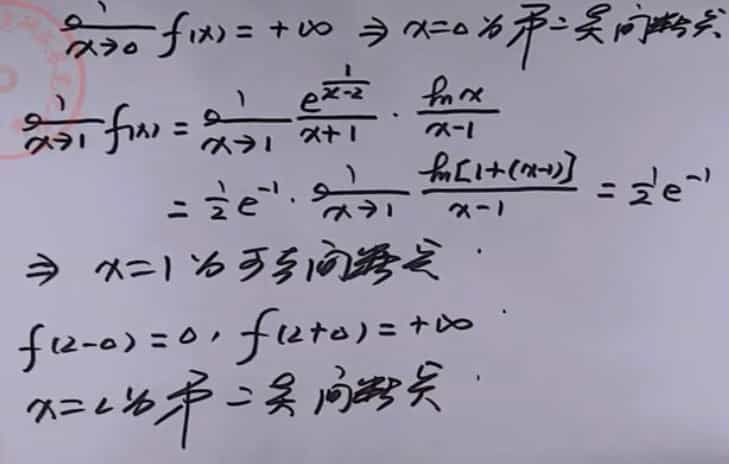 lim x→0 f(x) = +∞ ⇒ x=0 为第二类间断点
lim x→1 f(x) = lim x→1 e^(1/(x-2))/(x+1) · ln x/(x-1)
= 1/2 e^(-1) · lim x→1 ln[1+(x-1)]/(x-1) = 1/2 e^(-1)
⇒ x=1 为可去间断点.
f(2-0)=0, f(2+0)=+∞.
x=2为第二类间断点.